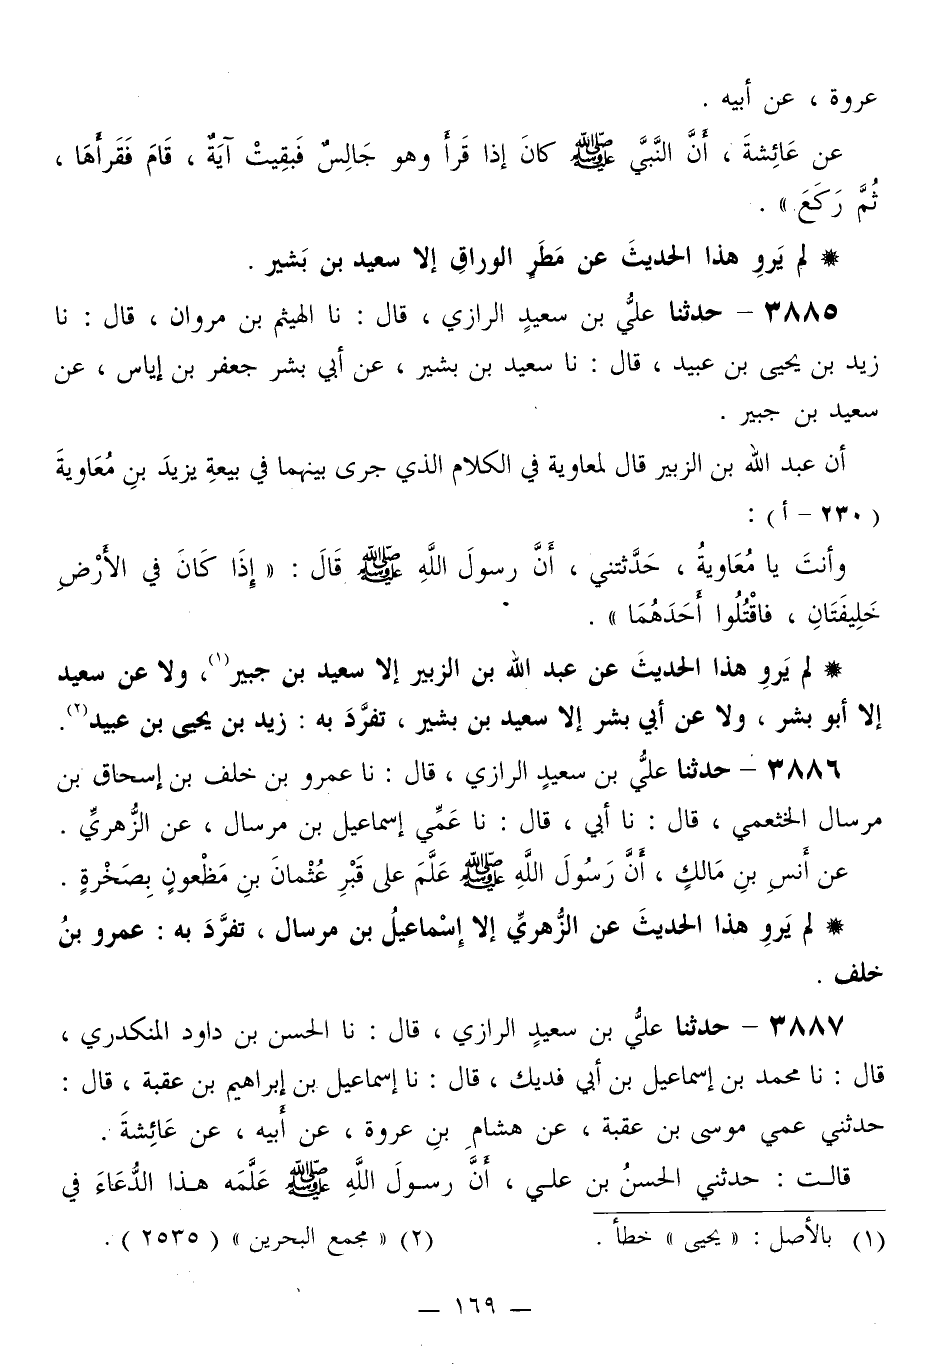 عروة ، عن أبيه .
عن عَائِشةَ ، أَنَّ النَّبيَّ ﷺ كانَ إذا قَرأَ وهو جَالِسٌ فَبقِيتْ آيَةٌ ، قَامَ فَقَرأَهَا ،
ثُمَّ رَكَعَ » .
* لم يَروِ هذا الحديثَ عن مَطَرٍ الوراقِ إلا سعيد بن بَشير .
٣٨٨٥ – حدثنا عليُّ بن سعيدٍ الرازي ، قال : نا الهيثم بن مروان ، قال : نا
زيد بن يحيى بن عبيد ، قال : نا سعيد بن بشير ، عن أبي بشر جعفر بن إياس ، عن
سعيد بن جبير .
أن عبد الله بن الزبير قال لمعاوية في الكلام الذي جرى بينهما في بيعةِ يزيدَ بنِ مُعَاويةَ
( ٢٣٠ – أ ) :
وأنتَ يا مُعَاويةُ ، حَدَّثتني ، أَنَّ رسولَ اللَّهِ ﷺ قَالَ : « إِذَا كَانَ في الأَرْضِ
خَلِيفَتَانِ ، فاقْتُلُوا أَحَدَهُمَا » .
* لم يَروِ هذا الحديثَ عن عبد الله بن الزبير إلا سعيد بن جبير(١)، ولا عن سعيد
إلا أبو بشر ، ولا عن أبي بشر إلا سعيد بن بشير ، تفرَّدَ به : زيد بن يحيى بن عبيد(٢).
٣٨٨٦ – حدثنا عليُّ بن سعيدٍ الرازي ، قال : نا عمرو بن خلف بن إسحاق بن
مرسال الخثعمي ، قال : نا أبي ، قال : نا عَمِّي إسماعيل بن مرسال ، عن الزُّهريِّ .
عن أَنسِ بنِ مَالكٍ ، أَنَّ رَسُولَ اللَّهِ ﷺ عَلَّمَ على قَبْرِ عُثْمانَ بنِ مَظْعونٍ بِصَخْرةٍ .
* لم يَروِ هذا الحديثَ عن الزُّهريِّ إلا إسْماعيلُ بن مرسال ، تفرَّدَ به : عمرو بنُ
خلف .
٣٨٨٧ – حدثنا عليُّ بن سعيدٍ الرازي ، قال : نا الحسن بن داود المنكدري ،
قال : نا محمد بن إسماعيل بن أبي فديك ، قال : نا إسماعيل بن إبراهيم بن عقبة ، قال :
حدثني عمي موسى بن عقبة ، عن هشامِ بنِ عروة ، عن أَبيه ، عن عَائِشةَ .
قالت : حدثني الحسنُ بن علي ، أَنَّ رسولَ اللَّهِ ﷺ عَلَّمَه هـذا الدُّعَاءَ في
(١) بالأصل : « يحيى » خطأ .
(٢) « مجمع البحرين » ( ٢٥٣٥ ) .
– ١٦٩ –